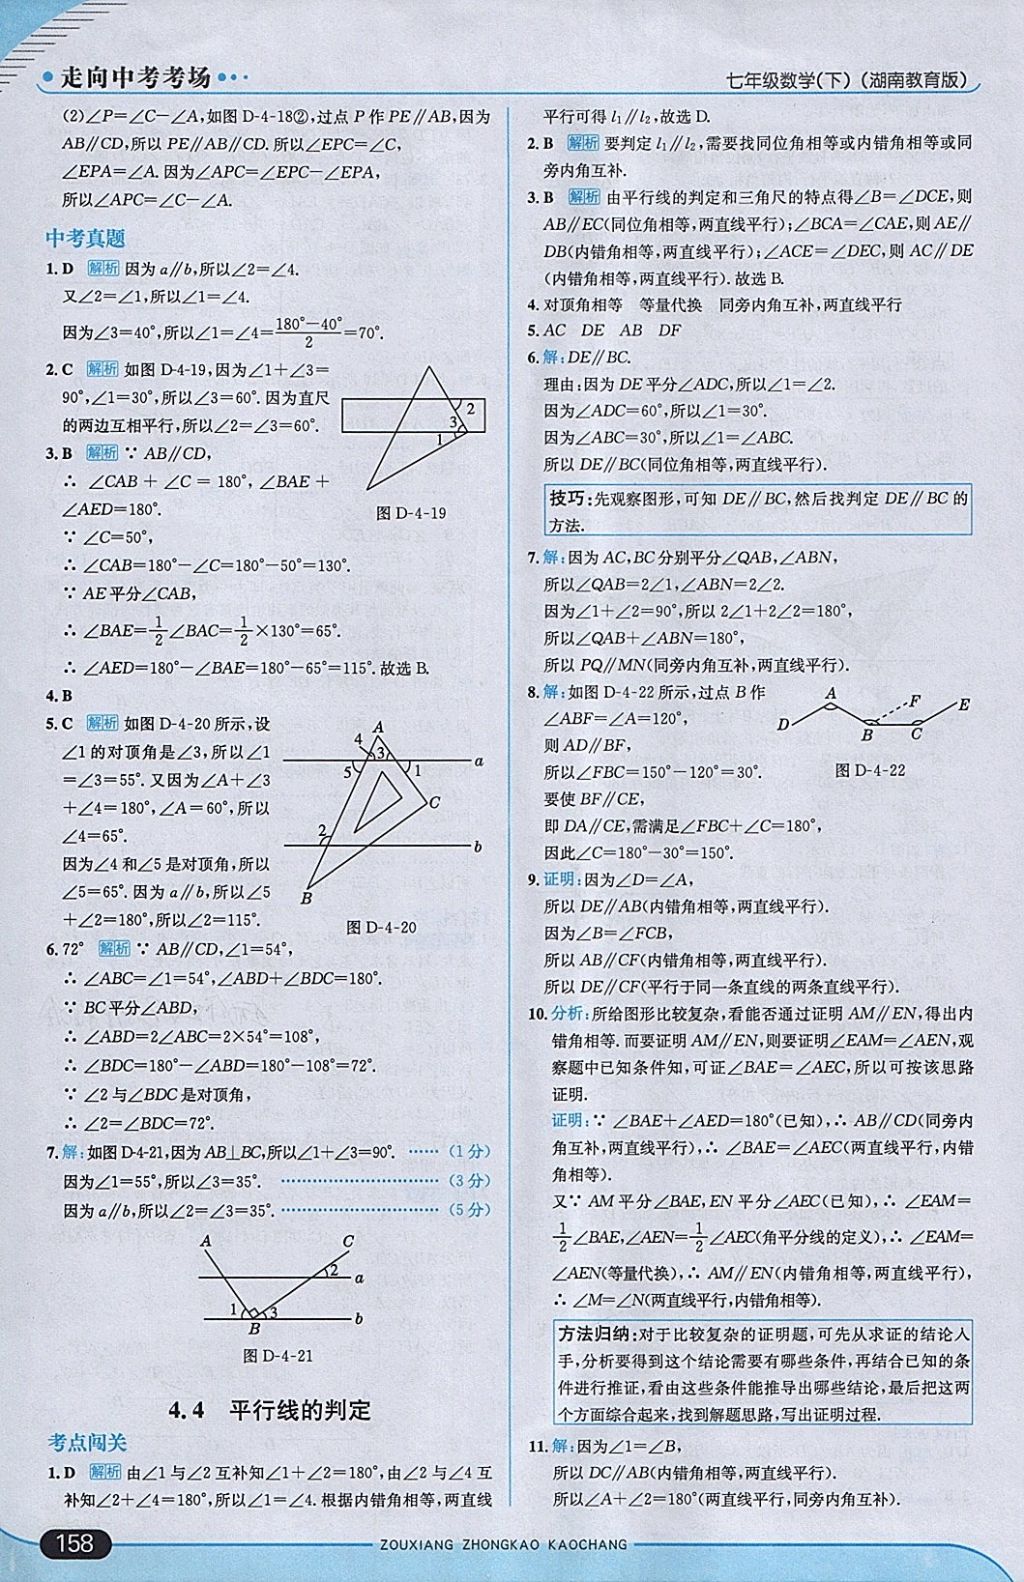 走向中考考场
七年级数学(下)(湖南教育版)
(2)∠P=∠C-∠A,如图 D-4-18②,过点 P 作 PE∥AB,因为
AB∥CD,所以 PE∥AB∥CD. 所以∠EPC=∠C,
∠EPA=∠A. 因为∠APC=∠EPC-∠EPA,
所以∠APC=∠C-∠A.
中考真题
1. D 解析 因为 a∥b,所以∠2=∠4.
又∠2=∠1,所以∠1=∠4.
因为∠3=40°,所以∠1=∠4=(180°-40°)/2=70°.
2. C 解析 如图 D-4-19,因为∠1+∠3=
90°,∠1=30°,所以∠3=60°. 因为直尺
的两边互相平行,所以∠2=∠3=60°.
2
3
1
图 D-4-19
3. B 解析 ∵ AB∥CD,
∴ ∠CAB + ∠C = 180°, ∠BAE +
∠AED=180°.
∵ ∠C=50°,
∴ ∠CAB=180°-∠C=180°-50°=130°.
∵ AE 平分∠CAB,
∴ ∠BAE=1/2∠BAC=1/2×130°=65°.
∴ ∠AED=180°-∠BAE=180°-65°=115°. 故选 B.
4. B
5. C 解析 如图 D-4-20 所示,设
∠1 的对顶角是∠3,所以∠1
=∠3=55°. 又因为∠A+∠3
+∠4=180°,∠A=60°,所以
∠4=65°.
因为∠4 和∠5 是对顶角,所以
∠5=65°. 因为 a∥b,所以∠5
+∠2=180°,所以∠2=115°.
A
4
3
a
5
1
C
2
b
B
图 D-4-20
6. 72° 解析 ∵ AB∥CD,∠1=54°,
∴ ∠ABC=∠1=54°,∠ABD+∠BDC=180°.
∵ BC 平分∠ABD,
∴ ∠ABD=2∠ABC=2×54°=108°,
∴ ∠BDC=180°-∠ABD=180°-108°=72°.
∵ ∠2 与∠BDC 是对顶角,
∴ ∠2=∠BDC=72°.
7. 解:如图 D-4-21,因为 AB⊥BC,所以∠1+∠3=90°. ……(1 分)
因为∠1=55°,所以∠3=35°. ……………………(3 分)
因为 a∥b,所以∠2=∠3=35°. ……………………(5 分)
A
C
2
a
1
3
B
b
图 D-4-21
4.4 平行线的判定
考点闯关
1. D 解析 由∠1 与∠2 互补知∠1+∠2=180°,由∠2 与∠4 互
补知∠2+∠4=180°,所以∠1=∠4. 根据内错角相等,两直线
平行可得 l₁∥l₂,故选 D.
2. B 解析 要判定 l₁∥l₂,需要找同位角相等或内错角相等或同
旁内角互补.
3. B 解析 由平行线的判定和三角尺的特点得∠B=∠DCE,则
AB∥EC(同位角相等,两直线平行);∠BCA=∠CAE,则 AE∥
DB(内错角相等,两直线平行);∠ACE=∠DEC,则 AC∥DE
(内错角相等,两直线平行). 故选 B.
4. 对顶角相等 等量代换 同旁内角互补,两直线平行
5. AC DE AB DF
6. 解:DE∥BC.
理由:因为 DE 平分∠ADC,所以∠1=∠2.
因为∠ADC=60°,所以∠1=30°.
因为∠ABC=30°,所以∠1=∠ABC.
所以 DE∥BC(同位角相等,两直线平行).
技巧:先观察图形,可知 DE∥BC,然后找判定 DE∥BC 的
方法.
7. 解:因为 AC,BC 分别平分∠QAB,∠ABN,
所以∠QAB=2∠1,∠ABN=2∠2.
因为∠1+∠2=90°,所以 2∠1+2∠2=180°,
所以∠QAB+∠ABN=180°,
所以 PQ∥MN(同旁内角互补,两直线平行).
8. 解:如图 D-4-22 所示,过点 B 作
∠ABF=∠A=120°,
则 AD∥BF,
所以∠FBC=150°-120°=30°.
要使 BF∥CE,
即 DA∥CE,需满足∠FBC+∠C=180°,
因此∠C=180°-30°=150°.
A
F
E
D
B
C
图 D-4-22
9. 证明:因为∠D=∠A,
所以 DE∥AB(内错角相等,两直线平行).
因为∠B=∠FCB,
所以 AB∥CF(内错角相等,两直线平行).
所以 DE∥CF(平行于同一条直线的两条直线平行).
10. 分析:所给图形比较复杂,看能否通过证明 AM∥EN,得出内
错角相等. 而要证明 AM∥EN,则要证明∠EAM=∠AEN,观
察题中已知条件知,可证∠BAE=∠AEC,所以可按该思路
证明.
证明:∵ ∠BAE+∠AED=180°(已知),∴ AB∥CD(同旁内
角互补,两直线平行),∴ ∠BAE=∠AEC(两直线平行,内错
角相等).
又∵ AM 平分∠BAE,EN 平分∠AEC(已知),∴ ∠EAM=
1/2∠BAE,∠AEN=1/2∠AEC(角平分线的定义),∴ ∠EAM=
∠AEN(等量代换),∴ AM∥EN(内错角相等,两直线平行),
∴ ∠M=∠N(两直线平行,内错角相等).
方法归纳:对于比较复杂的证明题,可先从求证的结论入
手,分析要得到这个结论需要有哪些条件,再结合已知的条
件进行推证,看由这些条件能推导出哪些结论,最后把这两
个方面综合起来,找到解题思路,写出证明过程.
11. 解:因为∠1=∠B,
所以 DC∥AB(内错角相等,两直线平行).
所以∠A+∠2=180°(两直线平行,同旁内角互补).
158
ZOUXIANG ZHONGKAO KAOCHANG